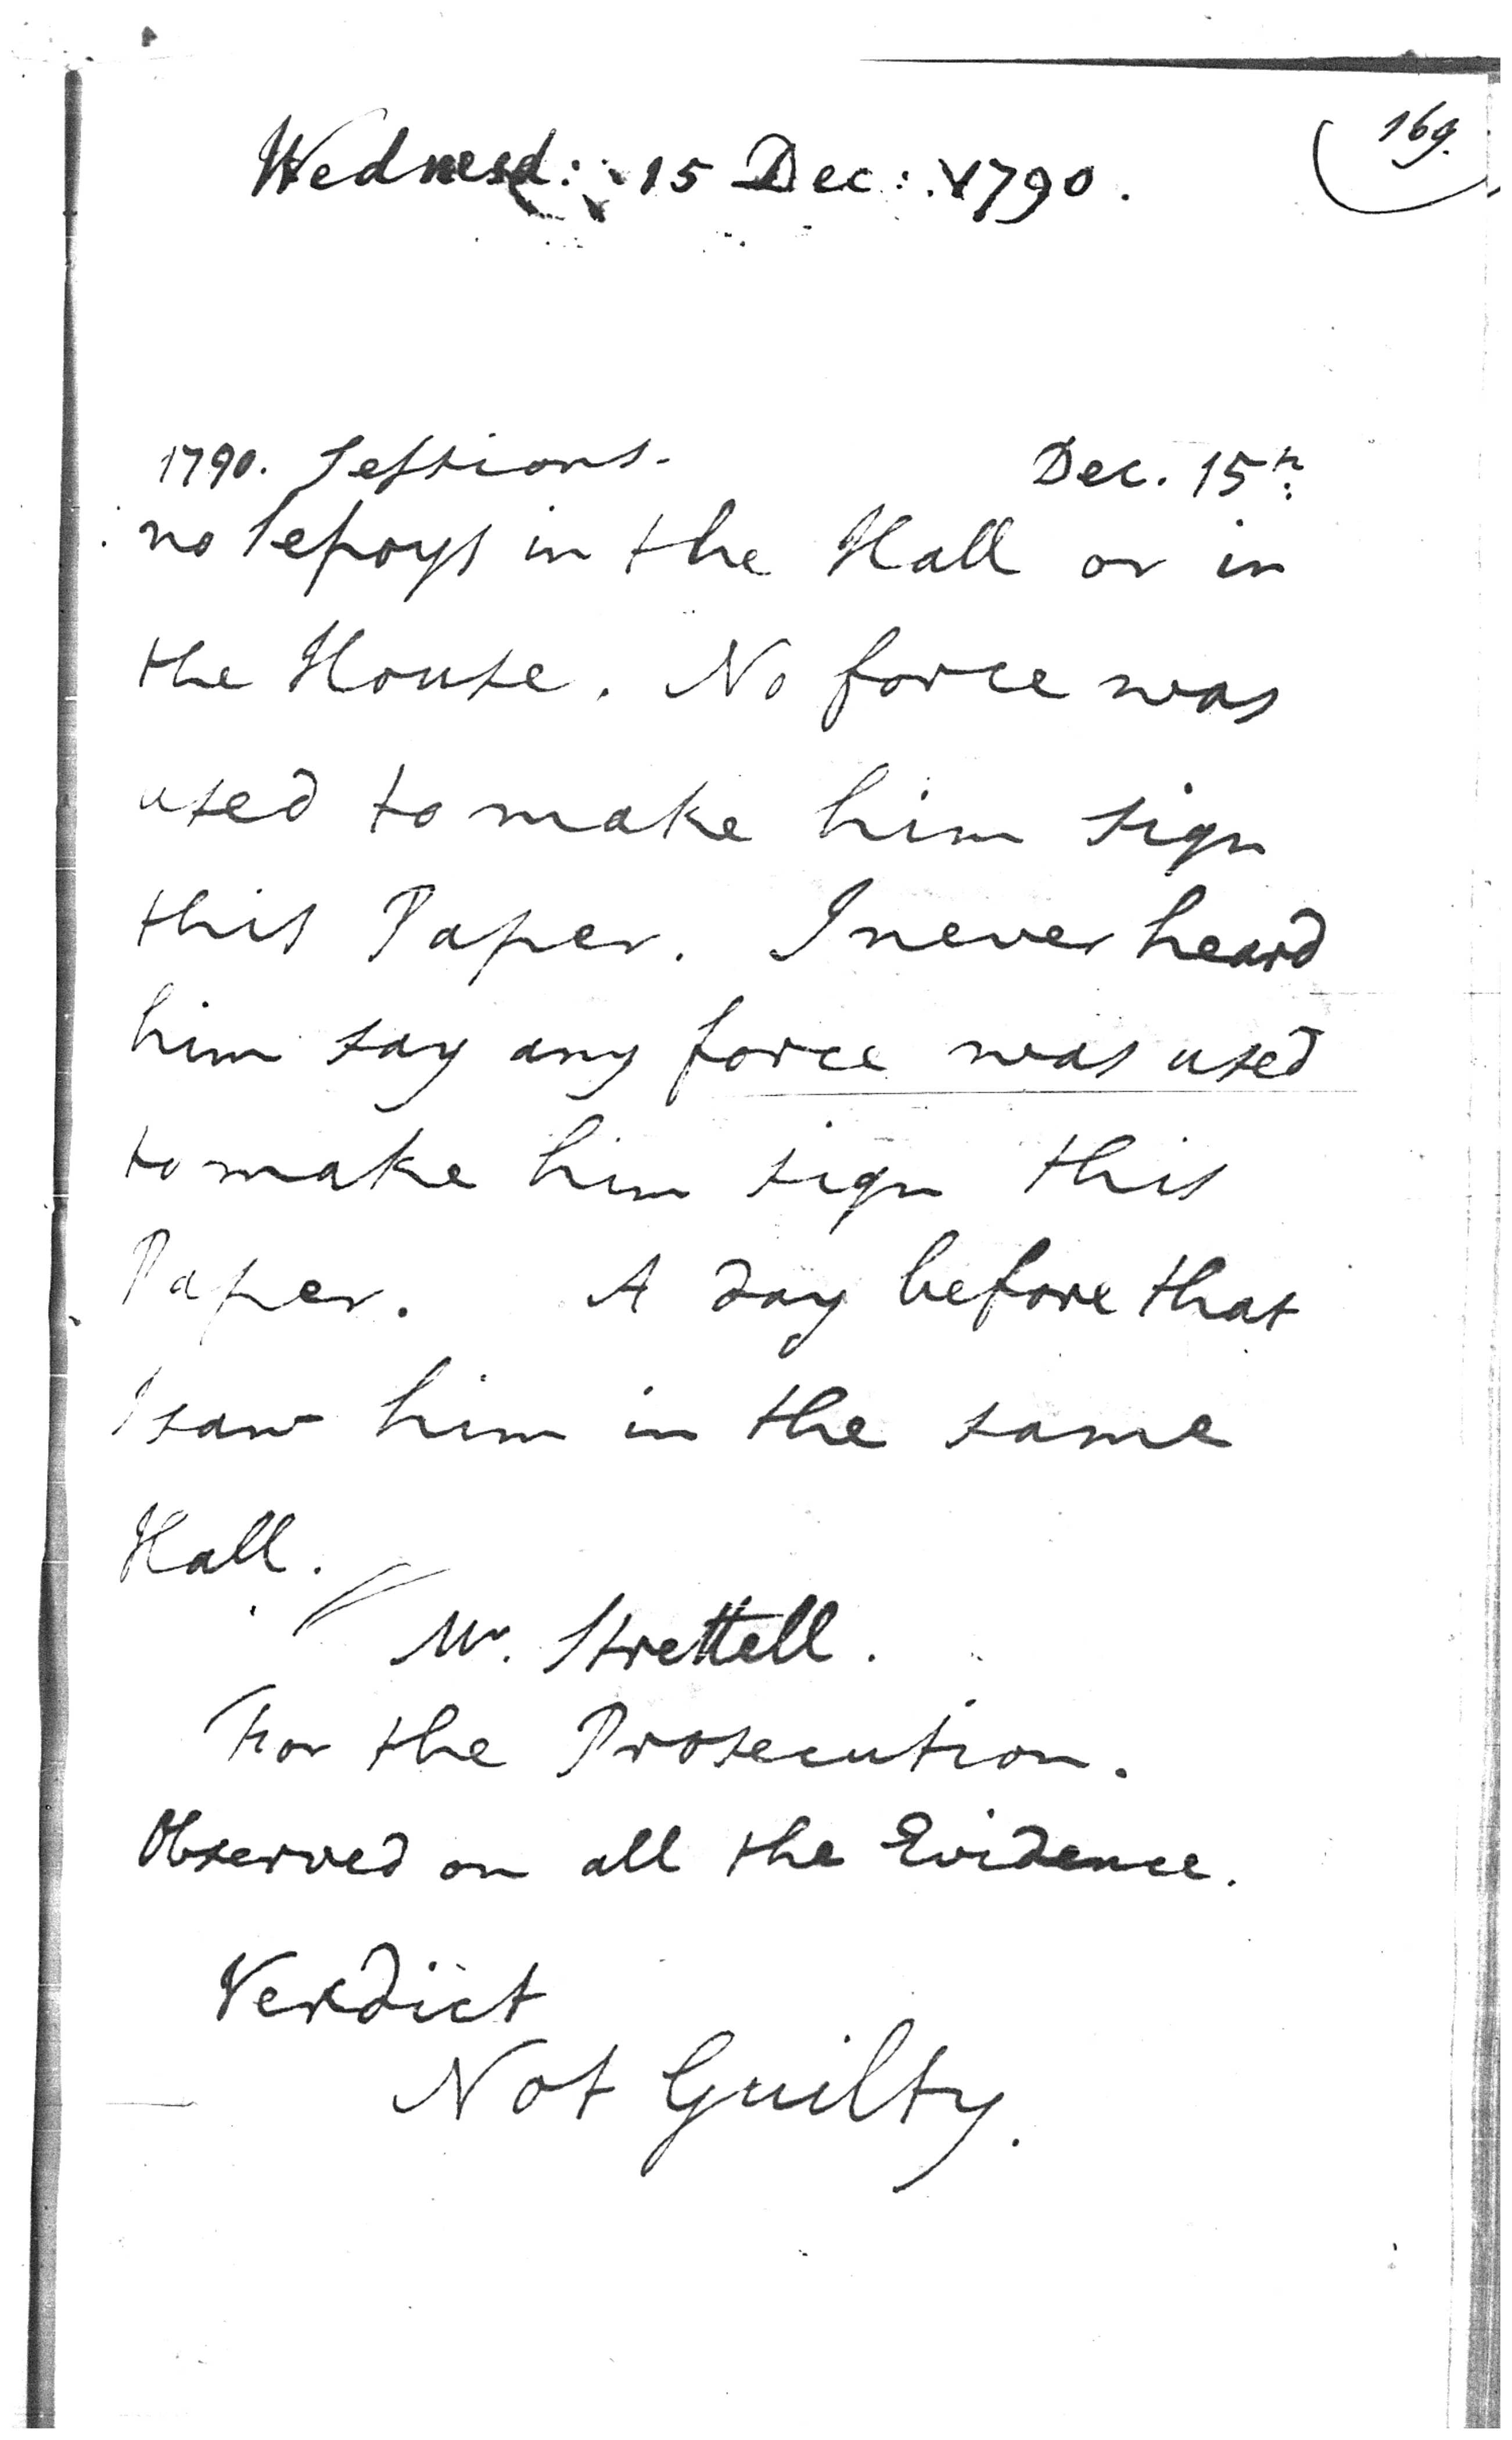 169.
Wednesd: 15 Dec: 1790.
1790. Sessions. Dec. 15th
no Sepoys in the Hall or in
the House. No force was
used to make him sign
this Paper. I never heard
him say any force was used
to make him sign this
Paper. A day before that
I saw him in the same
Hall.
Mr. Strettell.
For the Prosecution.
Observed on all the Evidence.
Verdict
Not Guilty.